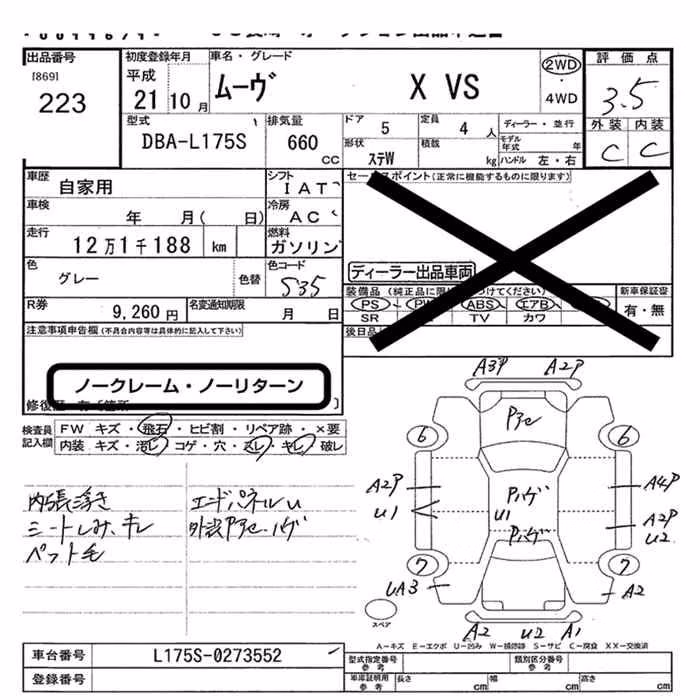 出品番号
[869]
223
初度登録年月
平成
21 10 月
車名・グレード
ムーヴ X VS
2WD
・
4WD
評価点
3.5
外装 内装
C C
型式
DBA-L175S
排気量
660
CC
ドア 5
定員 4 人
ディーラー・並行
形状 ステW
積載 kg
モデル年式 年
ハンドル 左・右
車歴
自家用
シフト
IAT
車検
年 月( 日)
冷房
AC
走行
12万1千188 km
燃料
ガソリン
色
グレー
色替
色コード
S35
R券
9,260 円
名変通知期限
月 日
セールスポイント(正常に機能するものに限ります)
ディーラー出品車両
装備品(純正品に限り
つけてください)
新車保証書
PS・PW ABS・エアB
有・無
SR TV カワ
後日品
注意事項申告欄(不具合内容等は具体的に記入して下さい)
ノークレーム・ノーリターン
修復歴
検査員
記入欄
FW キズ・飛石・ヒビ割・リペア跡・×要
内装 キズ・汚レ・コゲ・穴・スレ・キレ・破レ
内張浮き
エンドパネルU
シートしみ、キレ
外装Pヌセ・ハゲ
ペット毛
A3P A2P
Pヌセ
6 6
A2P Pハゲ A4P
U1 U1 A2P
Pハゲ U2
7 7
UA3 A2
スペア
A2 U2 A1
A-キズ E-エクボ U-凹み W-補修跡 S-サビ C-腐食 XX-交換済
車台番号
L175S-0273552
登録番号
型式指定番号
参考
類別区分番号
参考
車庫証明用
参考
長さ cm
幅 cm
高さ cm